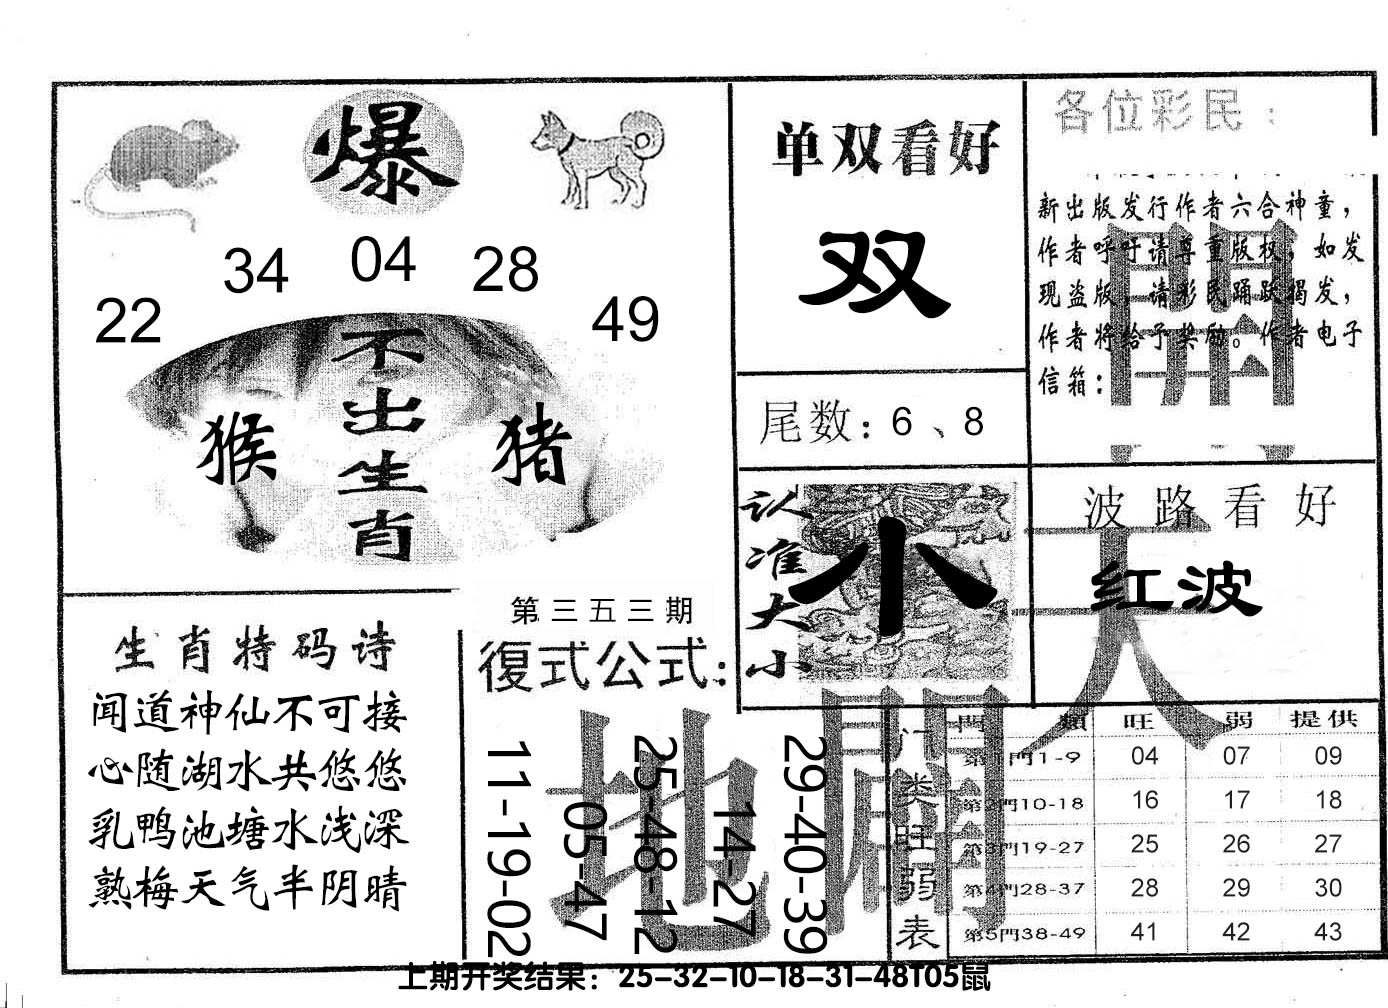 爆
22 34 04 28 49
不出生肖
猴 猪
单双看好
双
尾数：6、8
各位彩民：
新出版发行作者六合神童，
作者呼吁请尊重版权，如发
现盗版，请彩民踊跃揭发，
作者将给予奖励。作者电子
信箱：
開
认准大小
小
波路看好
红波
天
生肖特码诗
闻道神仙不可接
心随湖水共悠悠
乳鸭池塘水浅深
熟梅天气半阴晴
第三五三期
復式公式：
11-19-02
05-47
25-48-12
14-27
29-40-39
地
門类旺弱表
門類 旺 弱 提供
第1門1-9 04 07 09
第2門10-18 16 17 18
第3門19-27 25 26 27
第4門28-37 28 29 30
第5門38-49 41 42 43
上期开奖结果：25-32-10-18-31-48T05鼠